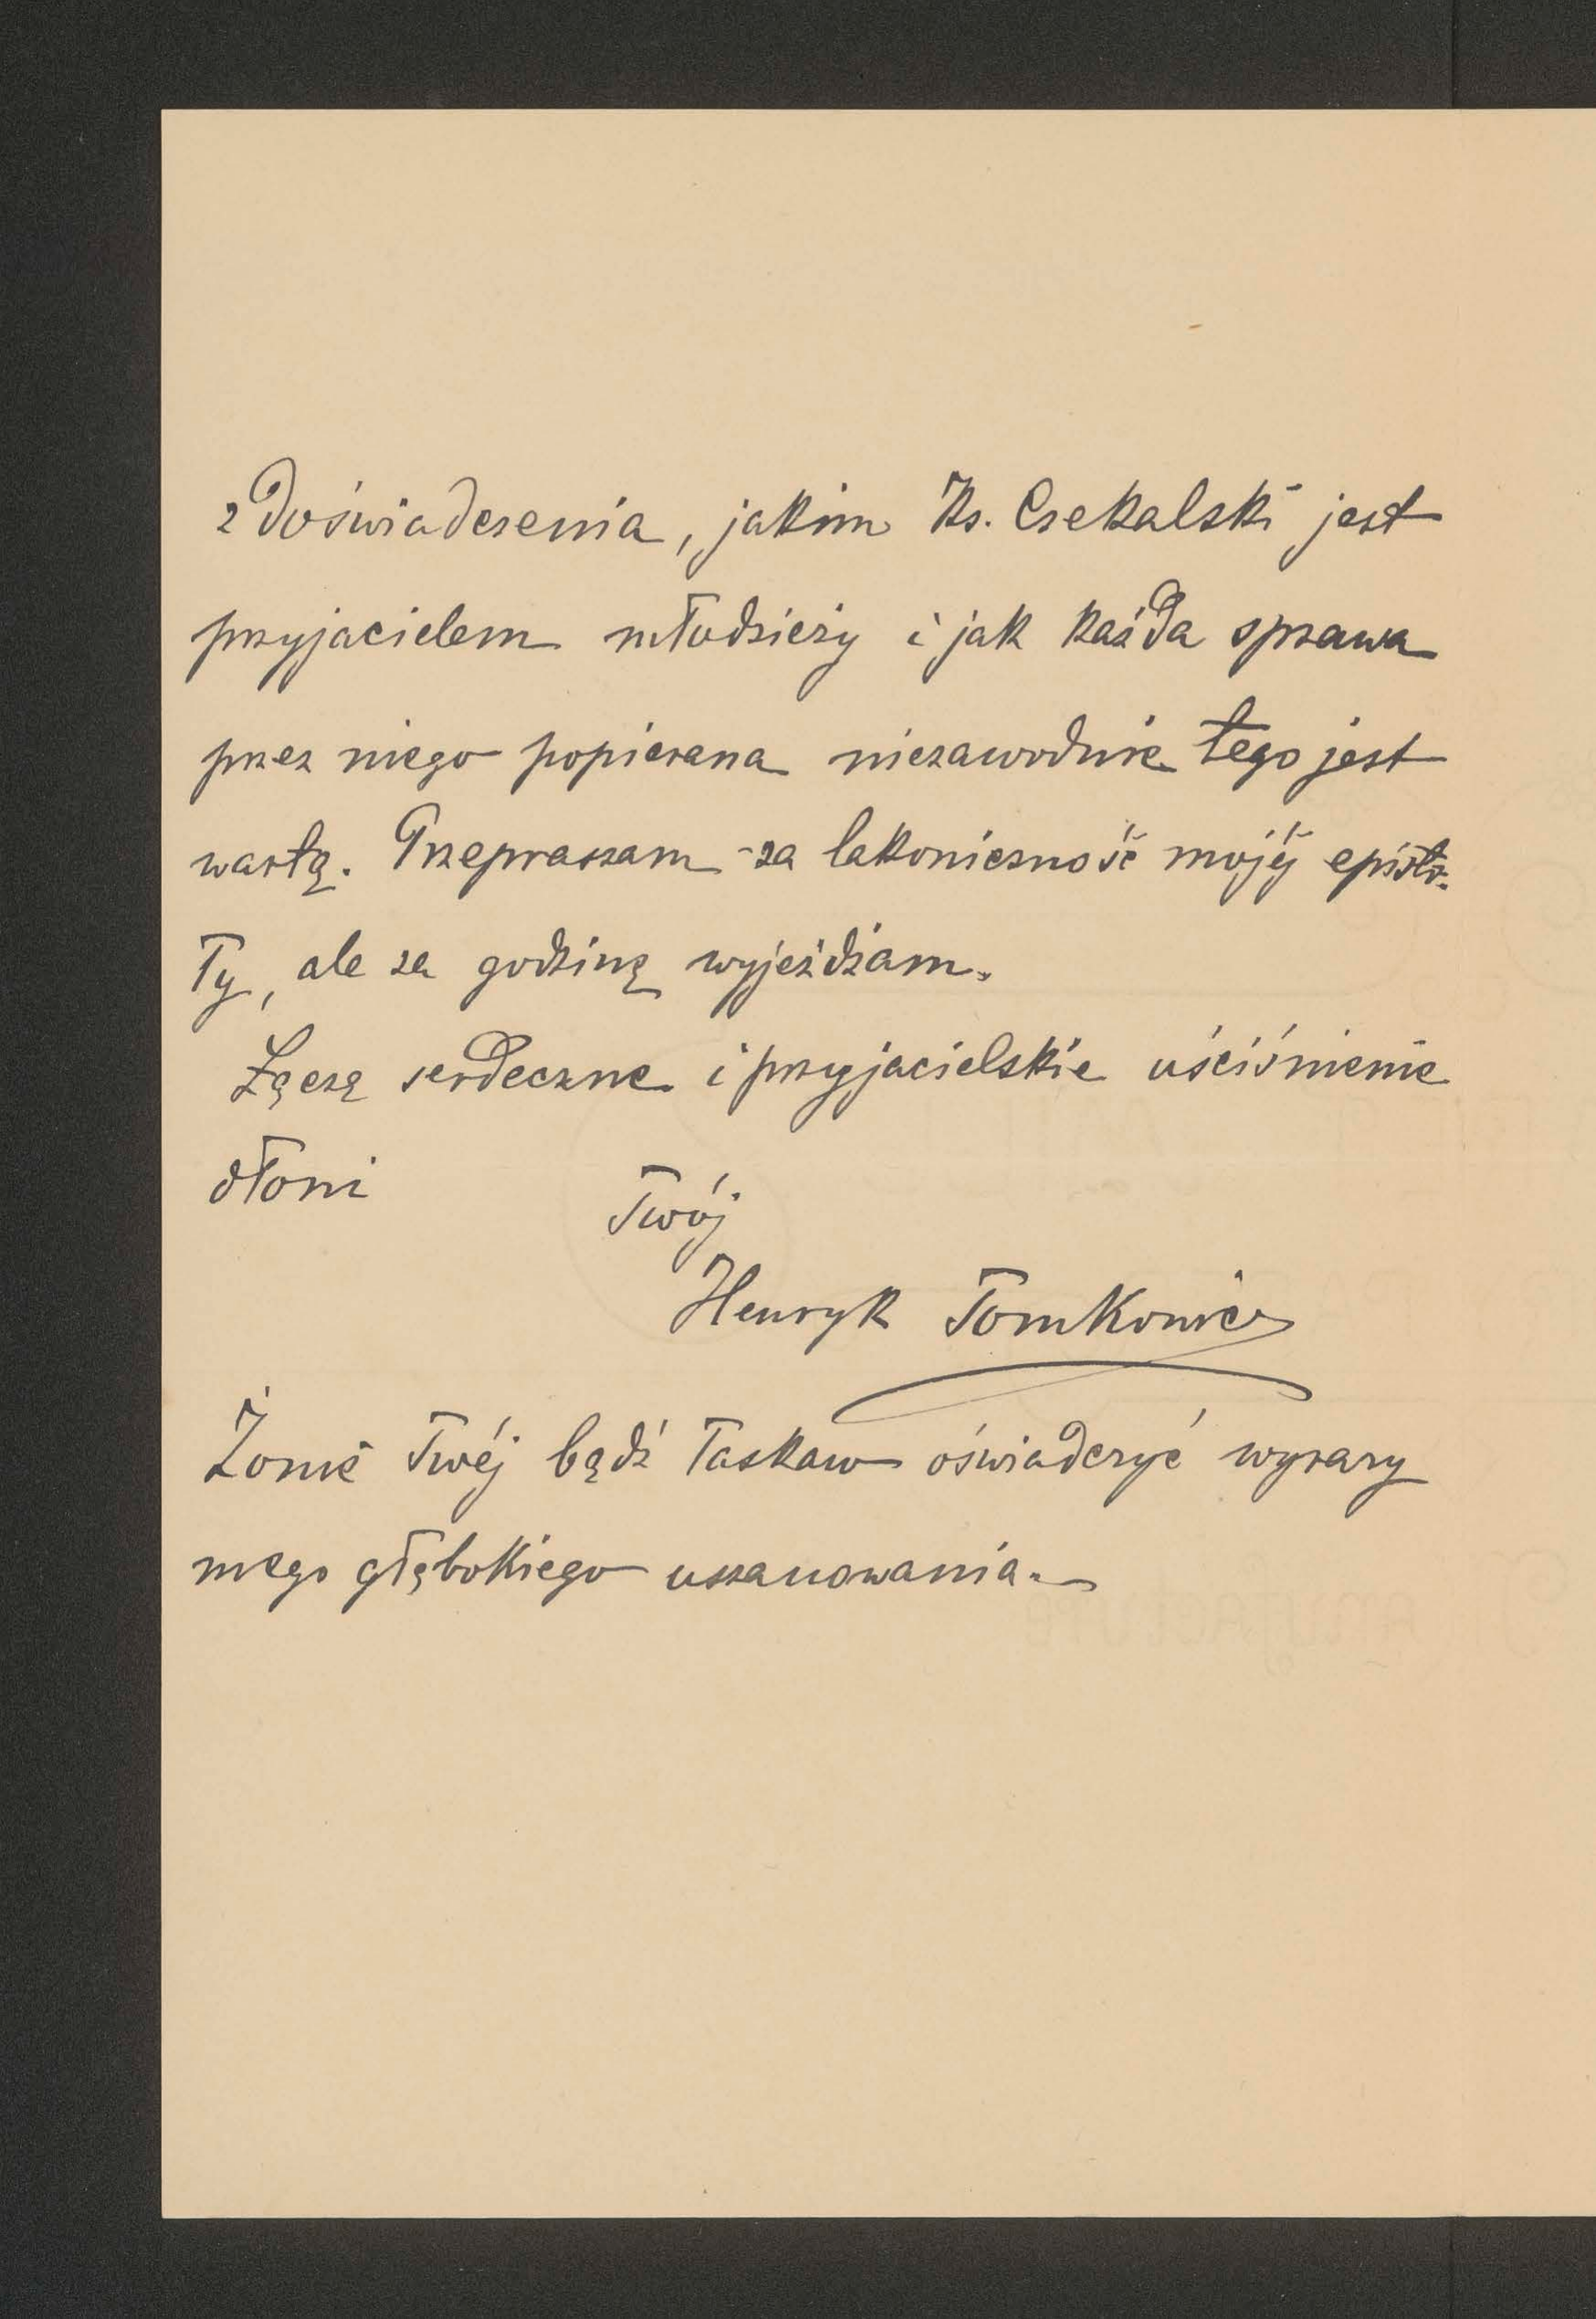 z doświadczenia, jakim Ks. Czekalski jest
przyjacielem młodzieży i jak każda sprawa
przez niego popierana niezawodnie tego jest
wartą. Przepraszam za lakoniczność mojéj episto-
ły, ale za godzinę wyjeżdżam.
Łączę serdeczne i przyjacielskie uściśnienie
dłoni
Twój
Henryk Tomkowicz
Żonie Twéj bądź łaskaw oświadczyć wyrazy
mego głębokiego uszanowania.